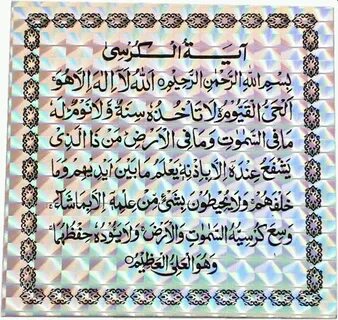 آية الكرسى
بِسْمِ اللهِ الرَّحْمٰنِ الرَّحِيْمِ ۝ اَللهُ لَآ اِلٰهَ اِلَّا هُوَ
اَلْحَىُّ الْقَيُّوْمُ ۝ لَا تَاْخُذُهٗ سِنَةٌ وَّلَا نَوْمٌ لَهٗ
مَا فِى السَّمٰوٰتِ وَمَا فِى الْاَرْضِ مَنْ ذَا الَّذِىْ
يَشْفَعُ عِنْدَهٗ اِلَّا بِاِذْنِهٖ يَعْلَمُ مَا بَيْنَ اَيْدِيْهِمْ وَمَا
خَلْفَهُمْ وَلَا يُحِيْطُوْنَ بِشَىْءٍ مِّنْ عِلْمِهٖ اِلَّا بِمَا شَآءَ
وَسِعَ كُرْسِيُّهُ السَّمٰوٰتِ وَالْاَرْضَ وَلَا يَئُوْدُهٗ حِفْظُهُمَا
وَهُوَ الْعَلِىُّ الْعَظِيْمُ ۝